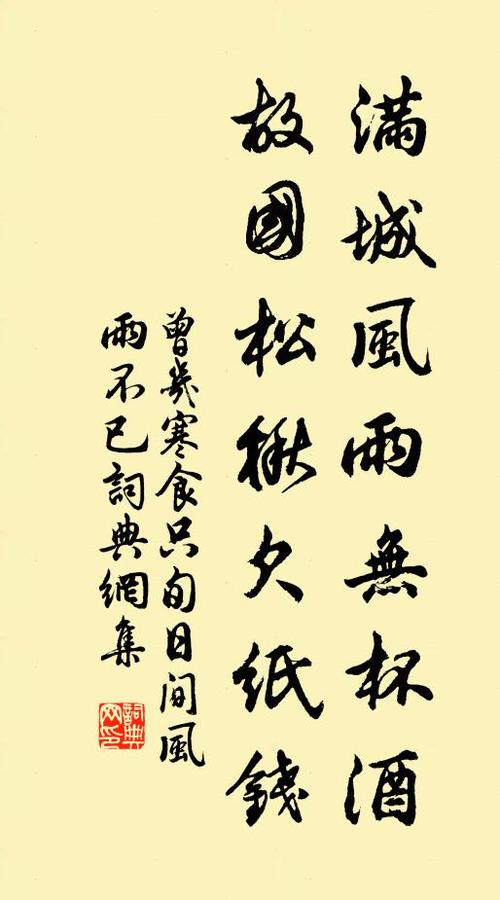 滿城風雨無杯酒
故國松楸欠紙錢
曾幾寒食只旬日間風
雨不已詞典網集
詞典
网印